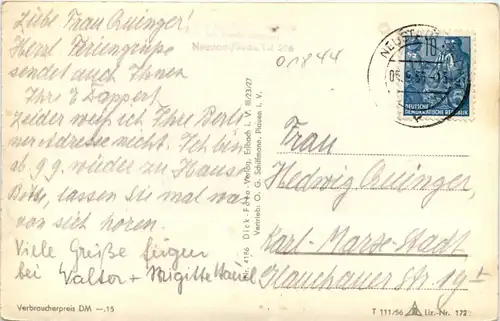 Liebe Frau Quinger!
Herzl. Feriengrüße
sendet auch Ihnen
Ihre E Tappert
Leider weiß ich Ihre Berli
ner Adresse nicht. Ich bin
ab 9.9. wieder zu Hause
Bitte, lassen Sie mal was
von sich hören.
Viele Grüße fügen
bei Walter + Brigitte
Verbraucherpreis DM —.15
Nr. 4186 Dick-Foto-Verlag, Erlbach i. V. III/23/27
Vertrieb: O. G. Schiffmann, Plauen i. V.
01844
10
DEUTSCHE
DEMOKRATISCHE REPUBLIK
Frau
Hedwig Quinger,
Karl-Marx-Stadt
Glauchauer Str. 19
T 111/56 Liz.-Nr. 172